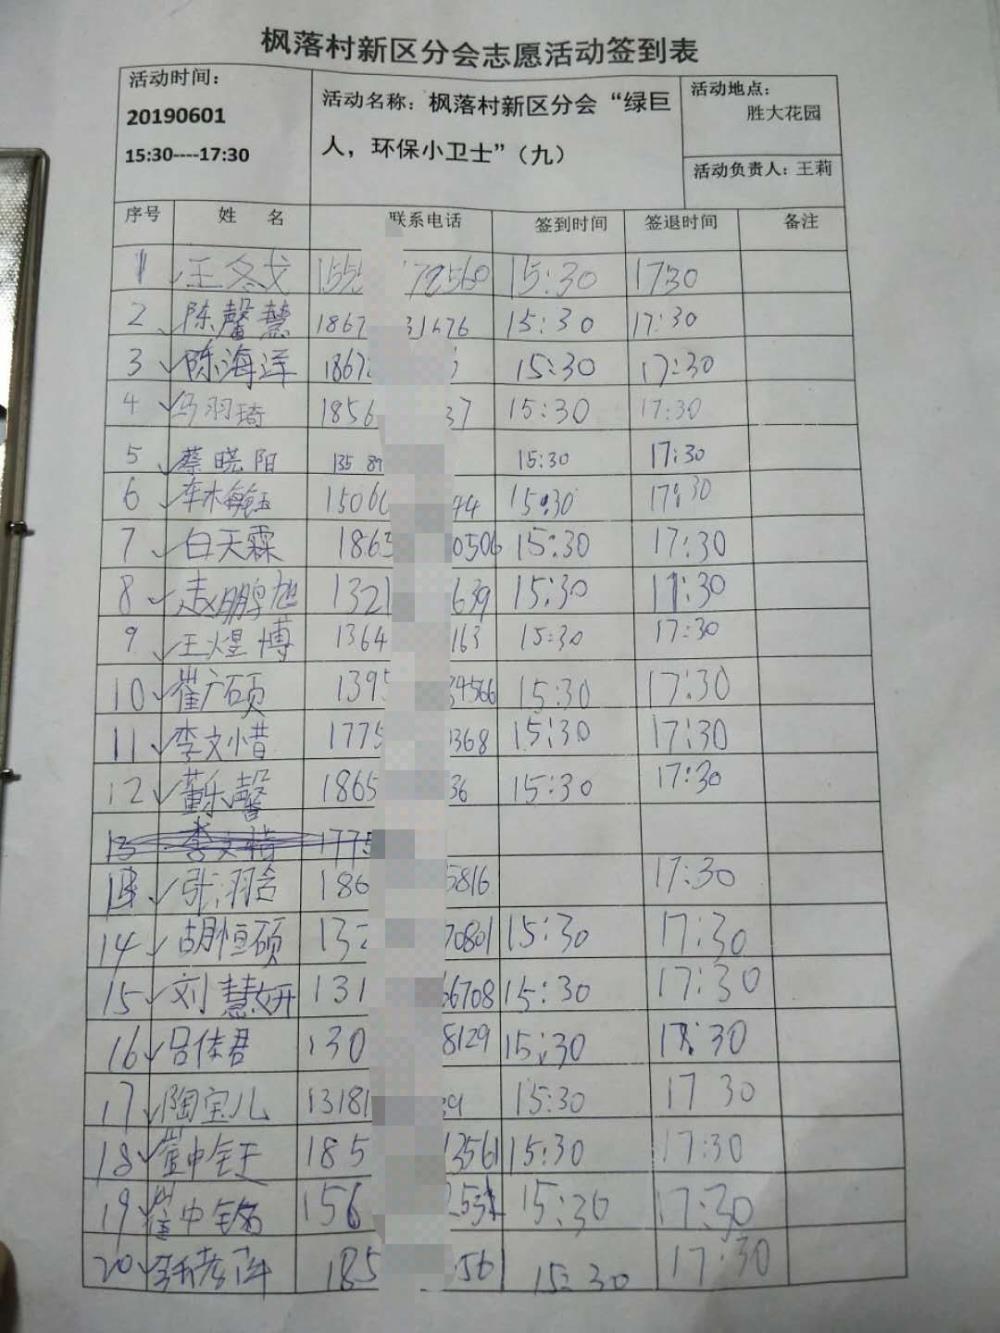 枫落村新区分会志愿活动签到表
活动时间：
20190601
15:30----17:30
活动名称：枫落村新区分会“绿巨
人，环保小卫士”（九）
活动地点：
胜大花园
活动负责人：王莉
序号 姓 名 联系电话 签到时间 签退时间 备注
1 王冬戈 155 78560 15:30 1730
2 陈馨慧 1867 31676 15:30 17:30
3 陈海洋 1867 15:30 17:30
4 马羽琦 1856 37 15:30 17:30
5 蔡晓阳 135 89 15:30 17:30
6 1506 44 15:30 17:30
7 白天霖 1863 0506 15:30 17:30
8 赵鹏旭 1321 639 15:30 17:30
9 王煜博 1364 163 15:30 17:30
10 崔广硕 1395 34566 15:30 17:30
11 李文惜 1775 368 15:30 17:30
12 董乐馨 1865 36 15:30 17:30
13 李文惜 1775
13 张羽含 186 5816 17:30
14 胡恒硕 132 70801 15:30 17:30
15 刘慧妍 131 66708 15:30 17:30
16 吕佳君 130 8129 15:30 17:30
17 陶宝儿 13181 39 15:30 17 30
18 185 13561 15:30 17:30
19 156 15:30 17:30
20 185 56 15:30 17:30